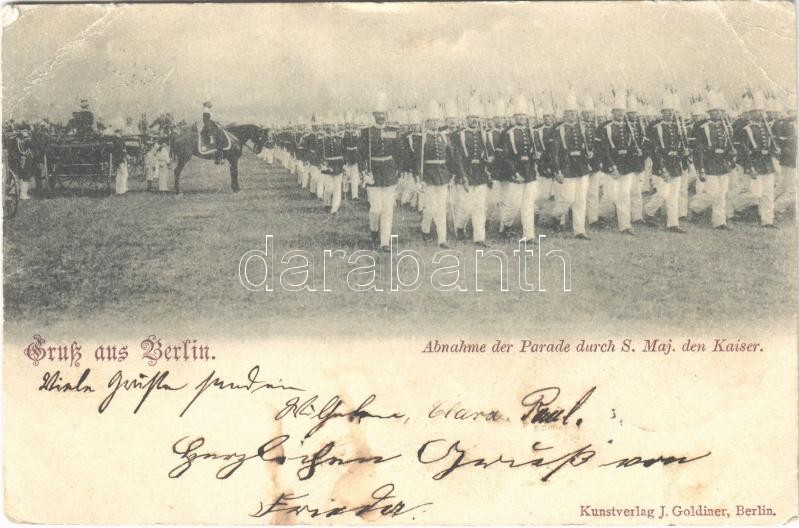 darabanth
Gruß aus Berlin.
Abnahme der Parade durch S. Maj. den Kaiser.
Viele Grüße senden
Wilhelm, Clara. Paul.
Herzlichen Gruß von
Frieda.
Kunstverlag J. Goldiner, Berlin.